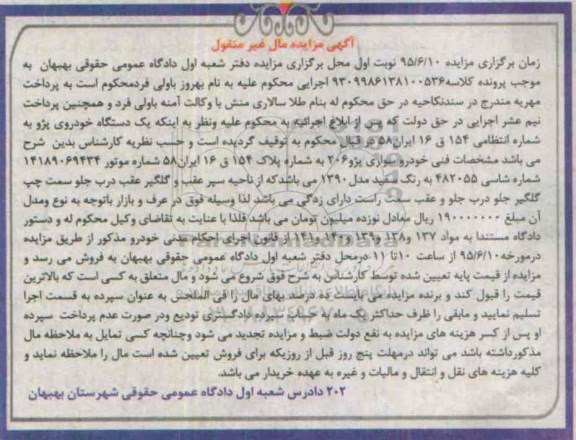 آگهی مزایده مال غیر منقول
زمان برگزاری مزایده ۹۵/۶/۱۰ نوبت اول محل برگزاری مزایده دفتر شعبه اول دادگاه عمومی حقوقی بهبهان به
موجب پرونده کلاسه ۹۳۰۹۹۸۶۱۳۸۱۰۰۵۳۶ اجرایی محکوم علیه به نام بهروز باولی فردمحکوم است به پرداخت
مهریه مندرج در سندنکاحیه در حق محکوم له بنام طلا سالاری منش با وکالت آمنه باولی فرد و همچنین پرداخت
نیم عشر اجرایی در حق دولت که پس از ابلاغ اجرائیه به محکوم علیه ونظر به اینکه یک دستگاه خودروی پژو به
شماره انتظامی ۱۵۴ ق ۱۶ ایران۵۸ در قبال محکوم به توقیف گردیده است و حسب نظریه کارشناس بدین شرح
می باشد مشخصات فنی خودرو سواری پژو۲۰۶ به شماره پلاک ۱۵۴ ق ۱۶ ایران۵۸ شماره موتور ۱۴۱۸۹۰۶۹۴۳۴
شماره شاسی ۴۸۲۰۵۵ به رنگ سفید مدل ۱۳۹۰ می باشدکه از ناحیه سپر عقب و گلگیر عقب درب جلو سمت چپ
گلگیر جلو درب جلو و عقب سمت راست دارای زدگی می باشد لذا وسیله فوق در عرف و بازار باتوجه به نوع ومدل
آن مبلغ ۱۹۰۰۰۰۰۰۰ ریال معادل نوزده میلیون تومان می باشد فلذا با عنایت به تقاضای وکیل محکوم له و دستور
دادگاه مستندا به مواد ۱۳۷ و۱۳۸ و۱۳۹ و۱۴۰ و۱۴۱ از قانون اجرای احکام مدنی خودرو مذکور از طریق مزایده
درمورخه ۹۵/۶/۱۰ از ساعت ۱۰ تا ۱۱ درمحل دفتر شعبه اول دادگاه عمومی حقوقی بهبهان به فروش می رسد و
مزایده از قیمت پایه تعیین شده توسط کارشناس به شرح فوق شروع می شود و مال متعلق به کسی است که بالاترین
قیمت را قبول کند و برنده مزایده می بایست ده درصد بهای مال را فی المجلس به عنوان سپرده به قسمت اجرا
تسلیم نمایید و مابقی را ظرف حداکثر یک ماه به حساب سپرده دادگستری تودیع ودر صورت عدم پرداخت سپرده
او پس از کسر هزینه های مزایده به نفع دولت ضبط و مزایده تجدید می شود وچنانچه کسی تمایل به ملاحظه مال
مذکورداشته باشد می تواند درمهلت پنج روز قبل از روزیکه برای فروش تعیین شده است مال را ملاحظه نماید و
کلیه هزینه های نقل و انتقال و مالیات و غیره به عهده خریدار می باشد.
۲۰۲ دادرس شعبه اول دادگاه عمومی حقوقی شهرستان بهبهان